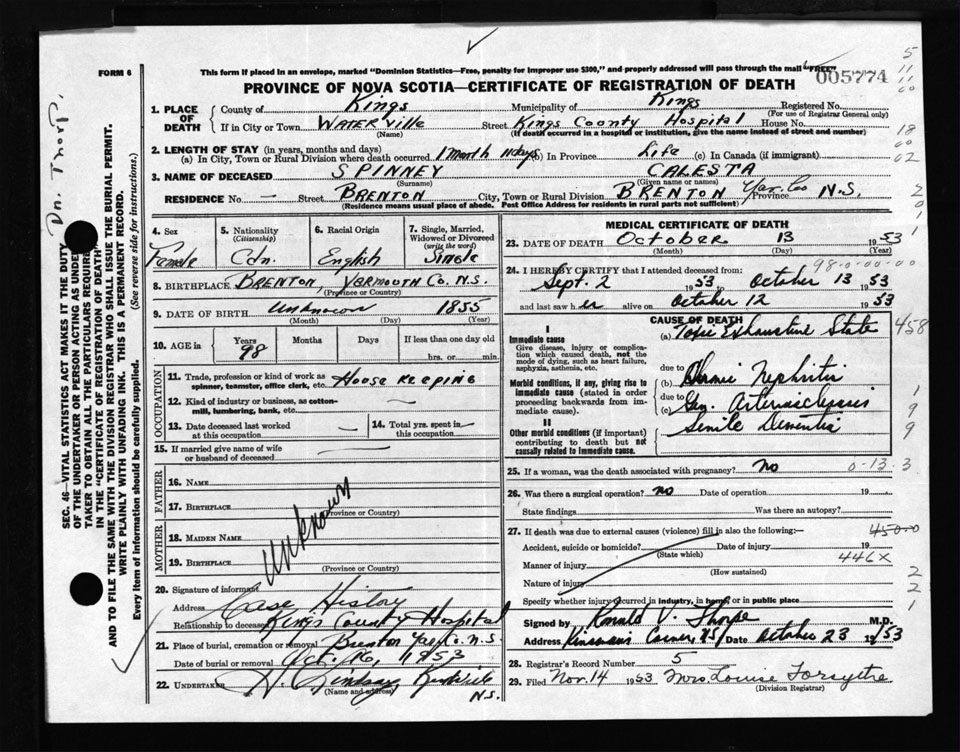 FORM 6
This form if placed in an envelope, marked "Dominion Statistics—Free, penalty for improper use $300," and properly addressed will pass through the mail "FREE"
005774
PROVINCE OF NOVA SCOTIA—CERTIFICATE OF REGISTRATION OF DEATH
1. PLACE OF DEATH
County of Kings Municipality of Kings Registered No.
(For use of Registrar General only)
If in City or Town Waterville Street Kings County Hospital House No.
(Name) (If death occurred in a hospital or institution, give the name instead of street and number)
2. LENGTH OF STAY (in years, months and days)
(a) In City, Town or Rural Division where death occurred 1 month 11 days (b) In Province Life (c) In Canada (if immigrant)
3. NAME OF DECEASED SPINNEY CALESTA
(Surname) (Given name or names)
RESIDENCE No. — Street BRENTON City, Town or Rural Division BRENTON Yar. Co Province N.S.
(Residence means usual place of abode. Post Office Address for residents in rural parts not sufficient)
4. Sex Female
5. Nationality (Citizenship) Cdn.
6. Racial Origin English
7. Single, Married, Widowed or Divorced (write the word) Single
8. BIRTHPLACE BRENTON, YARMOUTH Co. N.S.
(Province or Country)
9. DATE OF BIRTH Unknown 1855
(Month) (Day) (Year)
10. AGE in Years 98 Months Days If less than one day old
hrs. or min.
OCCUPATION
11. Trade, profession or kind of work as spinner, teamster, office clerk, etc. House keeping
12. Kind of industry or business, as cotton-mill, lumbering, bank, etc.
13. Date deceased last worked at this occupation
14. Total yrs. spent in this occupation
15. If married give name of wife or husband of deceased
FATHER
16. NAME
17. BIRTHPLACE
(Province or Country)
MOTHER
18. MAIDEN NAME
19. BIRTHPLACE
(Province or Country)
Unknown
20. Signature of informant
Address Case History
Relationship to deceased Kings County Hospital
21. Place of burial, cremation or removal Brenton Yar. Co. N.S.
Date of burial or removal Oct. 16, 1953
22. UNDERTAKER H. Lindsay N.S.
(Name and address)
MEDICAL CERTIFICATE OF DEATH
23. DATE OF DEATH October 13 1953
(Month) (Day) (Year)
98-0-00-00
24. I HEREBY CERTIFY that I attended deceased from:
Sept. 2 1953 to October 13 1953
and last saw her alive on October 12 1953
CAUSE OF DEATH
I
Immediate cause
Give disease, injury or complication which caused death, not the mode of dying, such as heart failure, asphyxia, asthenia, etc.
(a) Toxic Exhaustive State
Morbid conditions, if any, giving rise to immediate cause (stated in order proceeding backwards from immediate cause).
due to (b) Chronic Nephritis
due to (c) Gen. Arteriosclerosis
II
Other morbid conditions (if important) contributing to death but not causally related to immediate cause.
Senile Dementia
25. If a woman, was the death associated with pregnancy? No
0-13-3
26. Was there a surgical operation? No Date of operation 19
State findings Was there an autopsy?
27. If death was due to external causes (violence) fill in also the following:—
450-0
Accident, suicide or homicide? Date of injury 19
(State which)
446X
Manner of injury
(How sustained)
Nature of injury
Specify whether injury occurred in industry, in home, or in public place
Signed by Ronald V. Thorpe M.D.
Address Kinsman's Corner, NS Date October 23 1953
28. Registrar's Record Number 5
29. Filed Nov. 14 1953 Mrs. Louise Forsythe
(Division Registrar)
Dr. Thorp.
SEC. 46—VITAL STATISTICS ACT MAKES IT THE DUTY OF THE UNDERTAKER OR PERSON ACTING AS UNDERTAKER TO OBTAIN ALL THE PARTICULARS REQUIRED IN THE "CERTIFICATE OF REGISTRATION OF DEATH" AND TO FILE THE SAME WITH THE DIVISION REGISTRAR WHO SHALL ISSUE THE BURIAL PERMIT.
WRITE PLAINLY WITH UNFADING INK. THIS IS A PERMANENT RECORD.
Every item of information should be carefully supplied. (See reverse side for instructions.)
5
11
11
60
18
60
02
2
0
1
458
1
9
9
2
2
1